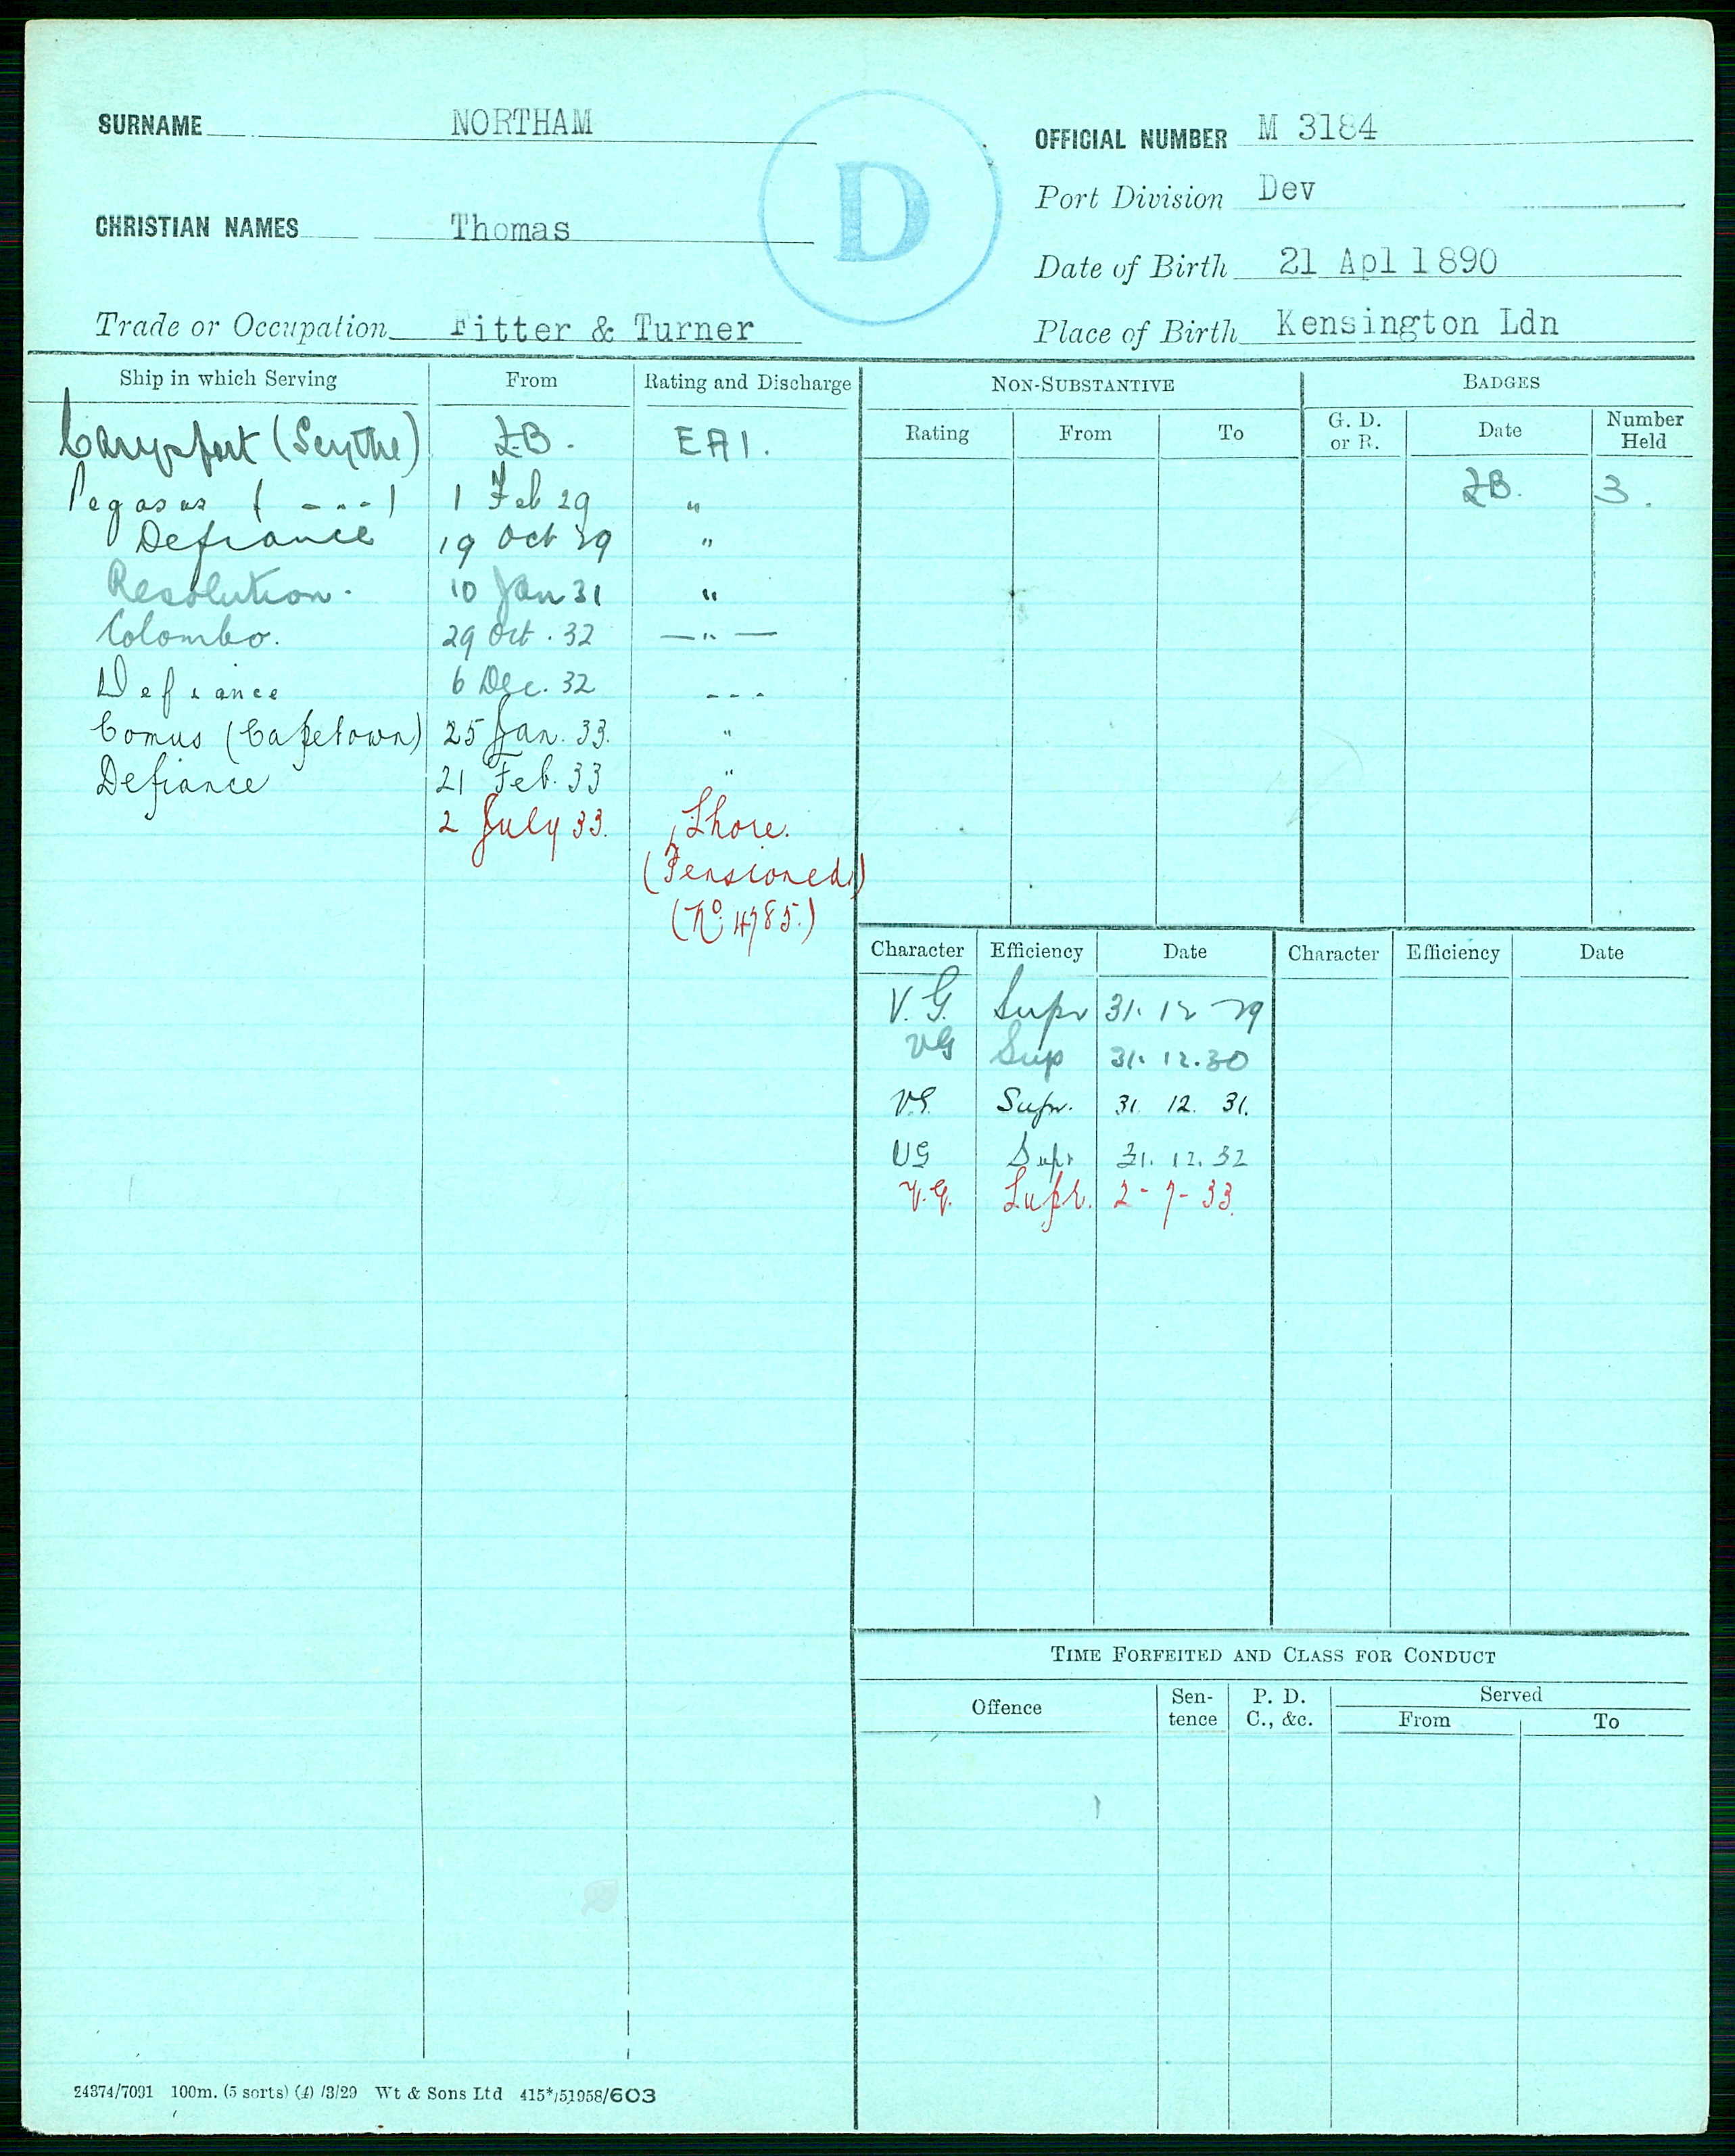 SURNAME NORTHAM
CHRISTIAN NAMES Thomas
Trade or Occupation Fitter & Turner
D
OFFICIAL NUMBER M 3184
Port Division Dev
Date of Birth 21 Apl 1890
Place of Birth Kensington Ldn
Ship in which Serving From Rating and Discharge
Carysfort (Scythe) ZB. EA1.
Pegasus ( " ) 1 Feb 29 "
Defiance 19 Oct 29 "
Resolution. 10 Jan 31 "
Colombo. 29 Oct. 32 — " —
Defiance 6 Dec. 32 - - -
Comus (Capetown) 25 Jan. 33. "
Defiance 21 Feb. 33 "
2 July 33. Shore.
(Pensioned)
(No. 4785.)
NON-SUBSTANTIVE
Rating From To
BADGES
G. D. or R. Date Number Held
ZB. 3.
Character Efficiency Date Character Efficiency Date
V.G. Supr 31. 12 29
VG Sup 31. 12. 30
VG. Supr. 31. 12. 31.
VG Supr 31. 12. 32
V.G. Supr. 2 - 7 - 33.
TIME FORFEITED AND CLASS FOR CONDUCT
Offence Sen-tence P. D. C., &c. Served
From To
24374/7091 100m. (5 sorts) (4) /3/29 Wt & Sons Ltd 415*/51958/603